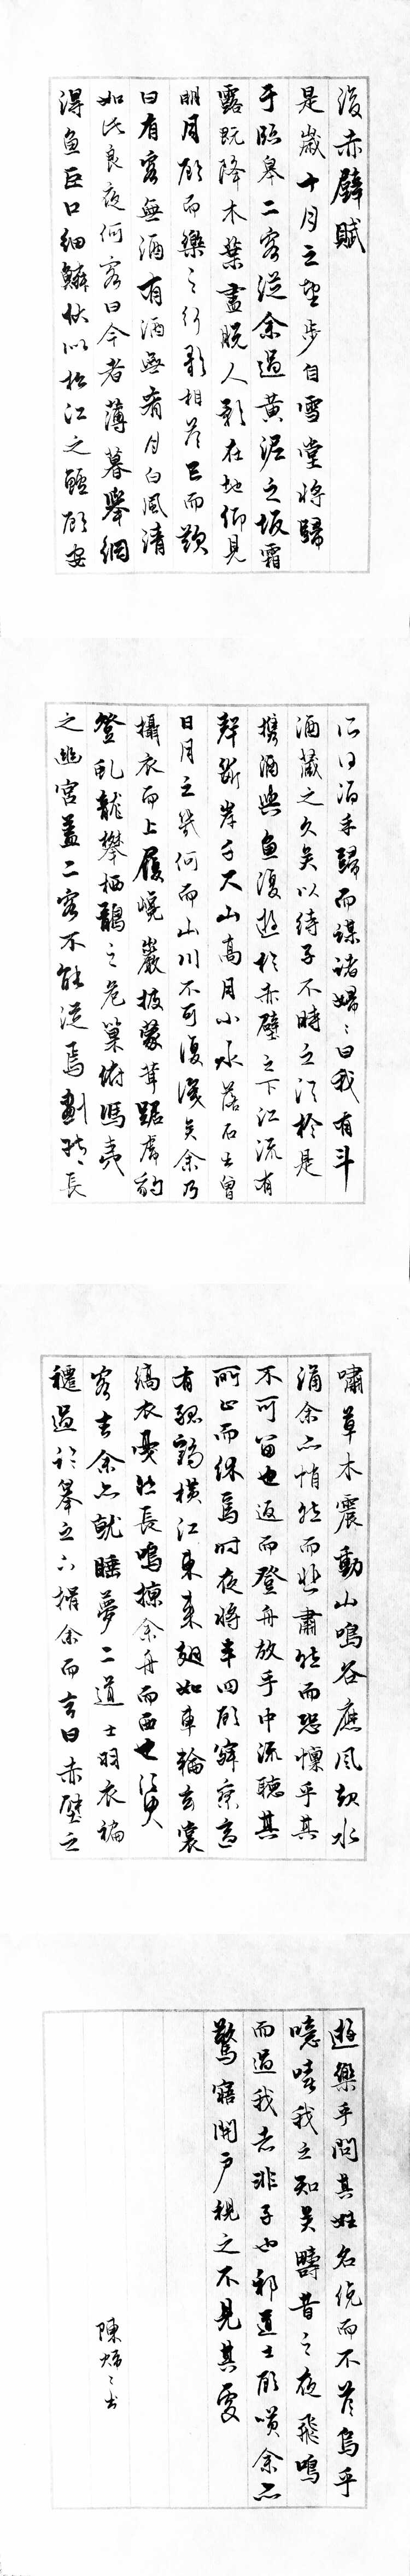 後赤壁賦
是歲十月之望步自雪堂將歸
于臨皋二客從余過黃泥之坂霜
露既降木葉盡脫人影在地仰見
明月顧而樂之行歌相答已而歎
曰有客無酒有酒無肴月白風清
如此良夜何客曰今者薄暮舉網
得魚巨口細鱗狀似松江之鱸顧安
所得酒乎歸而謀諸婦〻曰我有斗
酒藏之久矣以待子不時之須於是
攜酒與魚復遊於赤壁之下江流有
聲斷岸千尺山高月小水落石出曾
日月之幾何而山川不可復識矣余乃
攝衣而上履巉巖披蒙茸踞虎豹
登虬龍攀栖鶻之危巢俯馮夷
之幽宮蓋二客不能從焉劃然長
嘯草木震動山鳴谷應風起水
涌余亦悄然而悲肅然而恐懍乎其
不可留也返而登舟放乎中流聽其
所止而休焉時夜將半四顧寂寥適
有孤鶴橫江東來翅如車輪玄裳
縞衣戛然長鳴掠余舟而西也須臾
客去余亦就睡夢二道士羽衣褊
褼過臨皋之下揖余而言曰赤壁之
遊樂乎問其姓名俛而不答烏乎
噫嘻我之知矣疇昔之夜飛鳴
而過我者非子也邪道士顧笑余亦
驚寤開戶視之不見其處
陳〻書